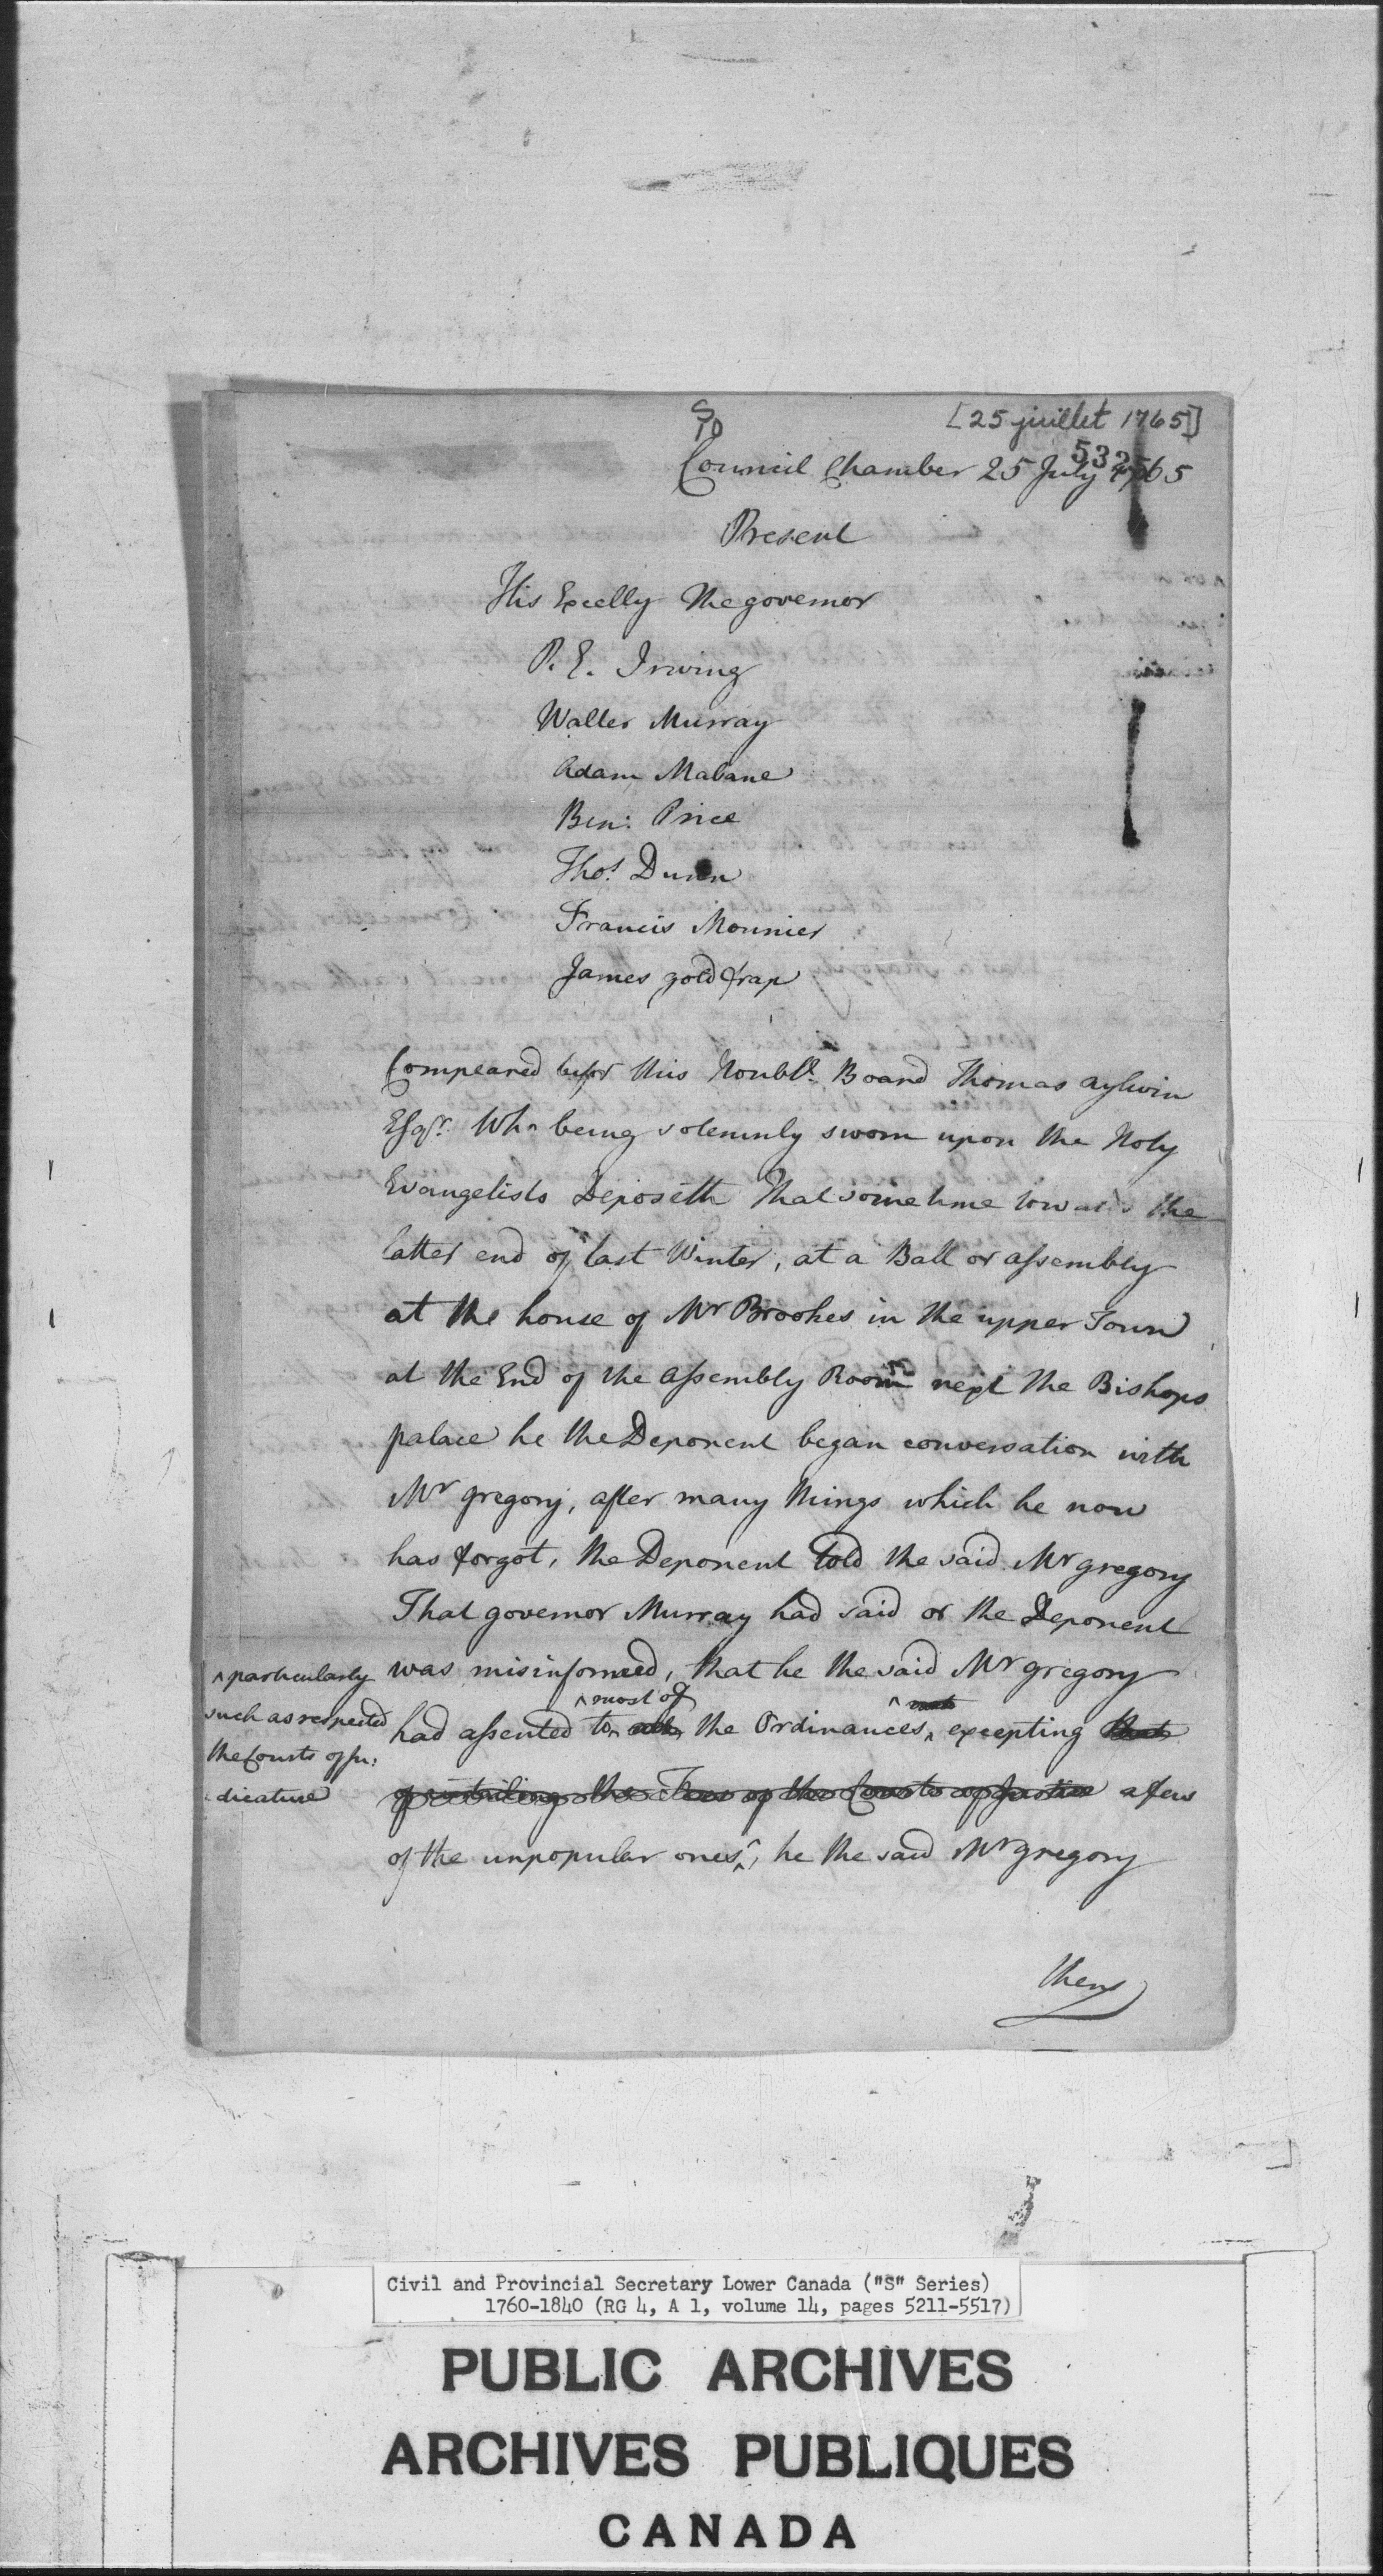 S
10
[25 juillet 1765]
532
Council Chamber 25 July 1765
Present
His Excelly The governor
P. E. Irwing
Walter Murray
Adam Mabane
Ben: Price
Thos. Dunn
Francis Mounier
James goldfrap
Compeared befor this Honble. Board Thomas aylwin
Esqr. Who being solemnly sworn upon the Holy
Evangelists Deposeth That some time towards the
latter end of last Winter, at a Ball or assembly
at the house of Mr Brookes in the upper Town
at the End of the assembly Room next the Bishops
palace he the Deponent began conversation with
Mr gregory, after many things which he now
has forgot, the Deponent told the said Mr gregory
That governor Murray had said or the Deponent
was misinformed, that he the said Mr gregory
^ most of ^ not
had assented to all the Ordinances, excepting that
of the Fees of the Courts of Justice a few
of the unpopular ones ^, he the said Mr gregory
^ particularly
such as respected
the Courts of ju:
dicature
then
Civil and Provincial Secretary Lower Canada ("S" Series)
1760-1840 (RG 4, A 1, volume 14, pages 5211-5517)
PUBLIC ARCHIVES
ARCHIVES PUBLIQUES
CANADA